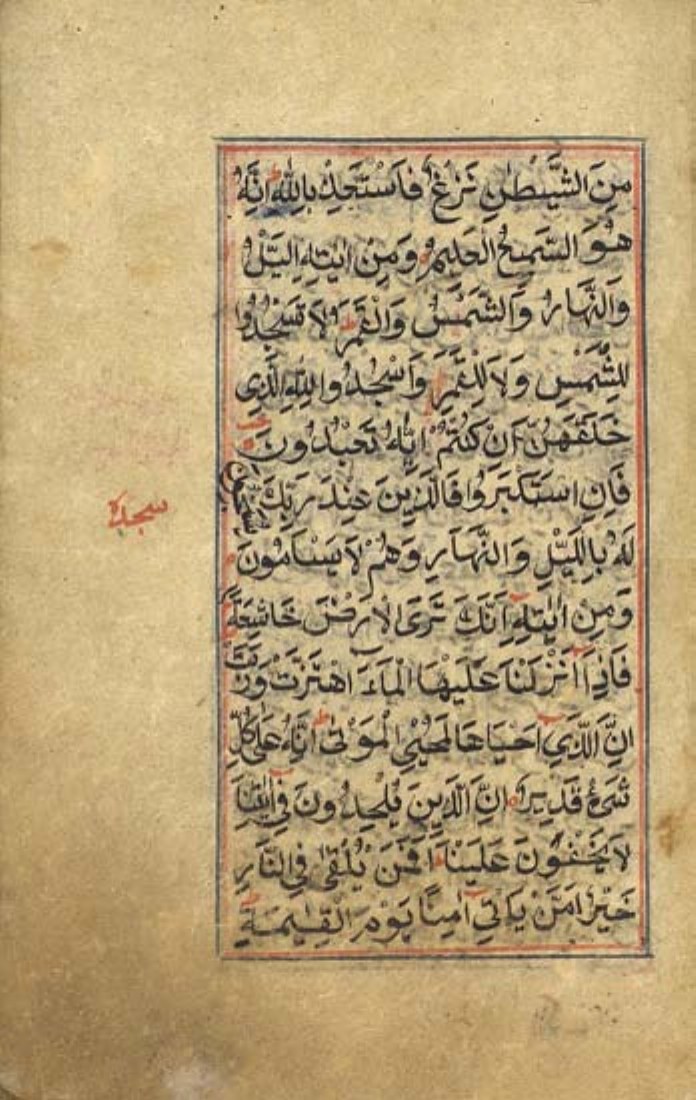 مِنَ الشَّيْطٰنِ نَزْغٌ فَاسْتَعِذْ بِاللّٰهِ اِنَّهٗ
هُوَ السَّمِيْعُ الْعَلِيْمُ وَمِنْ اٰيٰتِهِ الَّيْلُ
وَالنَّهَارُ وَالشَّمْسُ وَالْقَمَرُ لَا تَسْجُدُوْا
لِلشَّمْسِ وَلَا لِلْقَمَرِ وَاسْجُدُوْا لِلّٰهِ الَّذِيْ
خَلَقَهُنَّ اِنْ كُنْتُمْ اِيَّاهُ تَعْبُدُوْنَ
فَاِنِ اسْتَكْبَرُوْا فَالَّذِيْنَ عِنْدَ رَبِّكَ
سجدة
لَهٗ بِالَّيْلِ وَالنَّهَارِ وَهُمْ لَا يَسْاَمُوْنَ
وَمِنْ اٰيٰتِهٖ اَنَّكَ تَرَى الْاَرْضَ خَاشِعَةً
فَاِذَا اَنْزَلْنَا عَلَيْهَا الْمَآءَ اهْتَزَّتْ وَرَبَتْ
اِنَّ الَّذِيْ اَحْيَاهَا لَمُحْيِ الْمَوْتٰى اِنَّهٗ عَلٰى كُلِّ
شَيْءٍ قَدِيْرٌ اِنَّ الَّذِيْنَ يُلْحِدُوْنَ فِيْ اٰيٰتِنَا
لَا يَخْفَوْنَ عَلَيْنَا اَفَمَنْ يُلْقٰى فِي النَّارِ
خَيْرٌ اَمْ مَّنْ يَاْتِيْ اٰمِنًا يَوْمَ الْقِيٰمَةِ